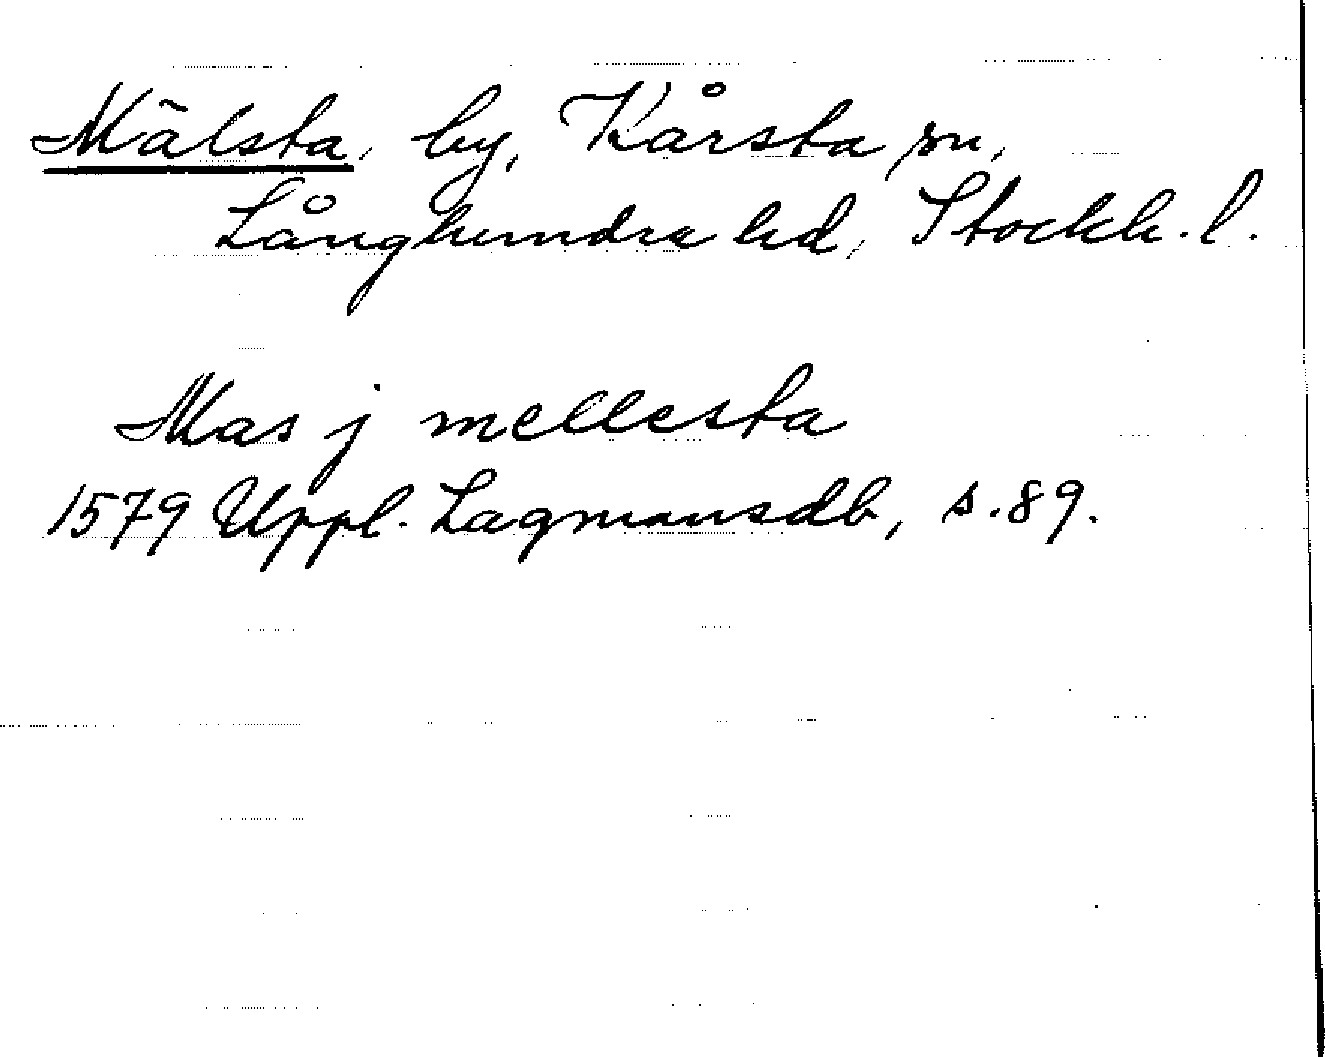 Mälsta, by, Kårsta sn,
Långhundra hd, Stockh. l.
Mas j mellesta
1579 Uppl. Lagmansdb, s. 89.